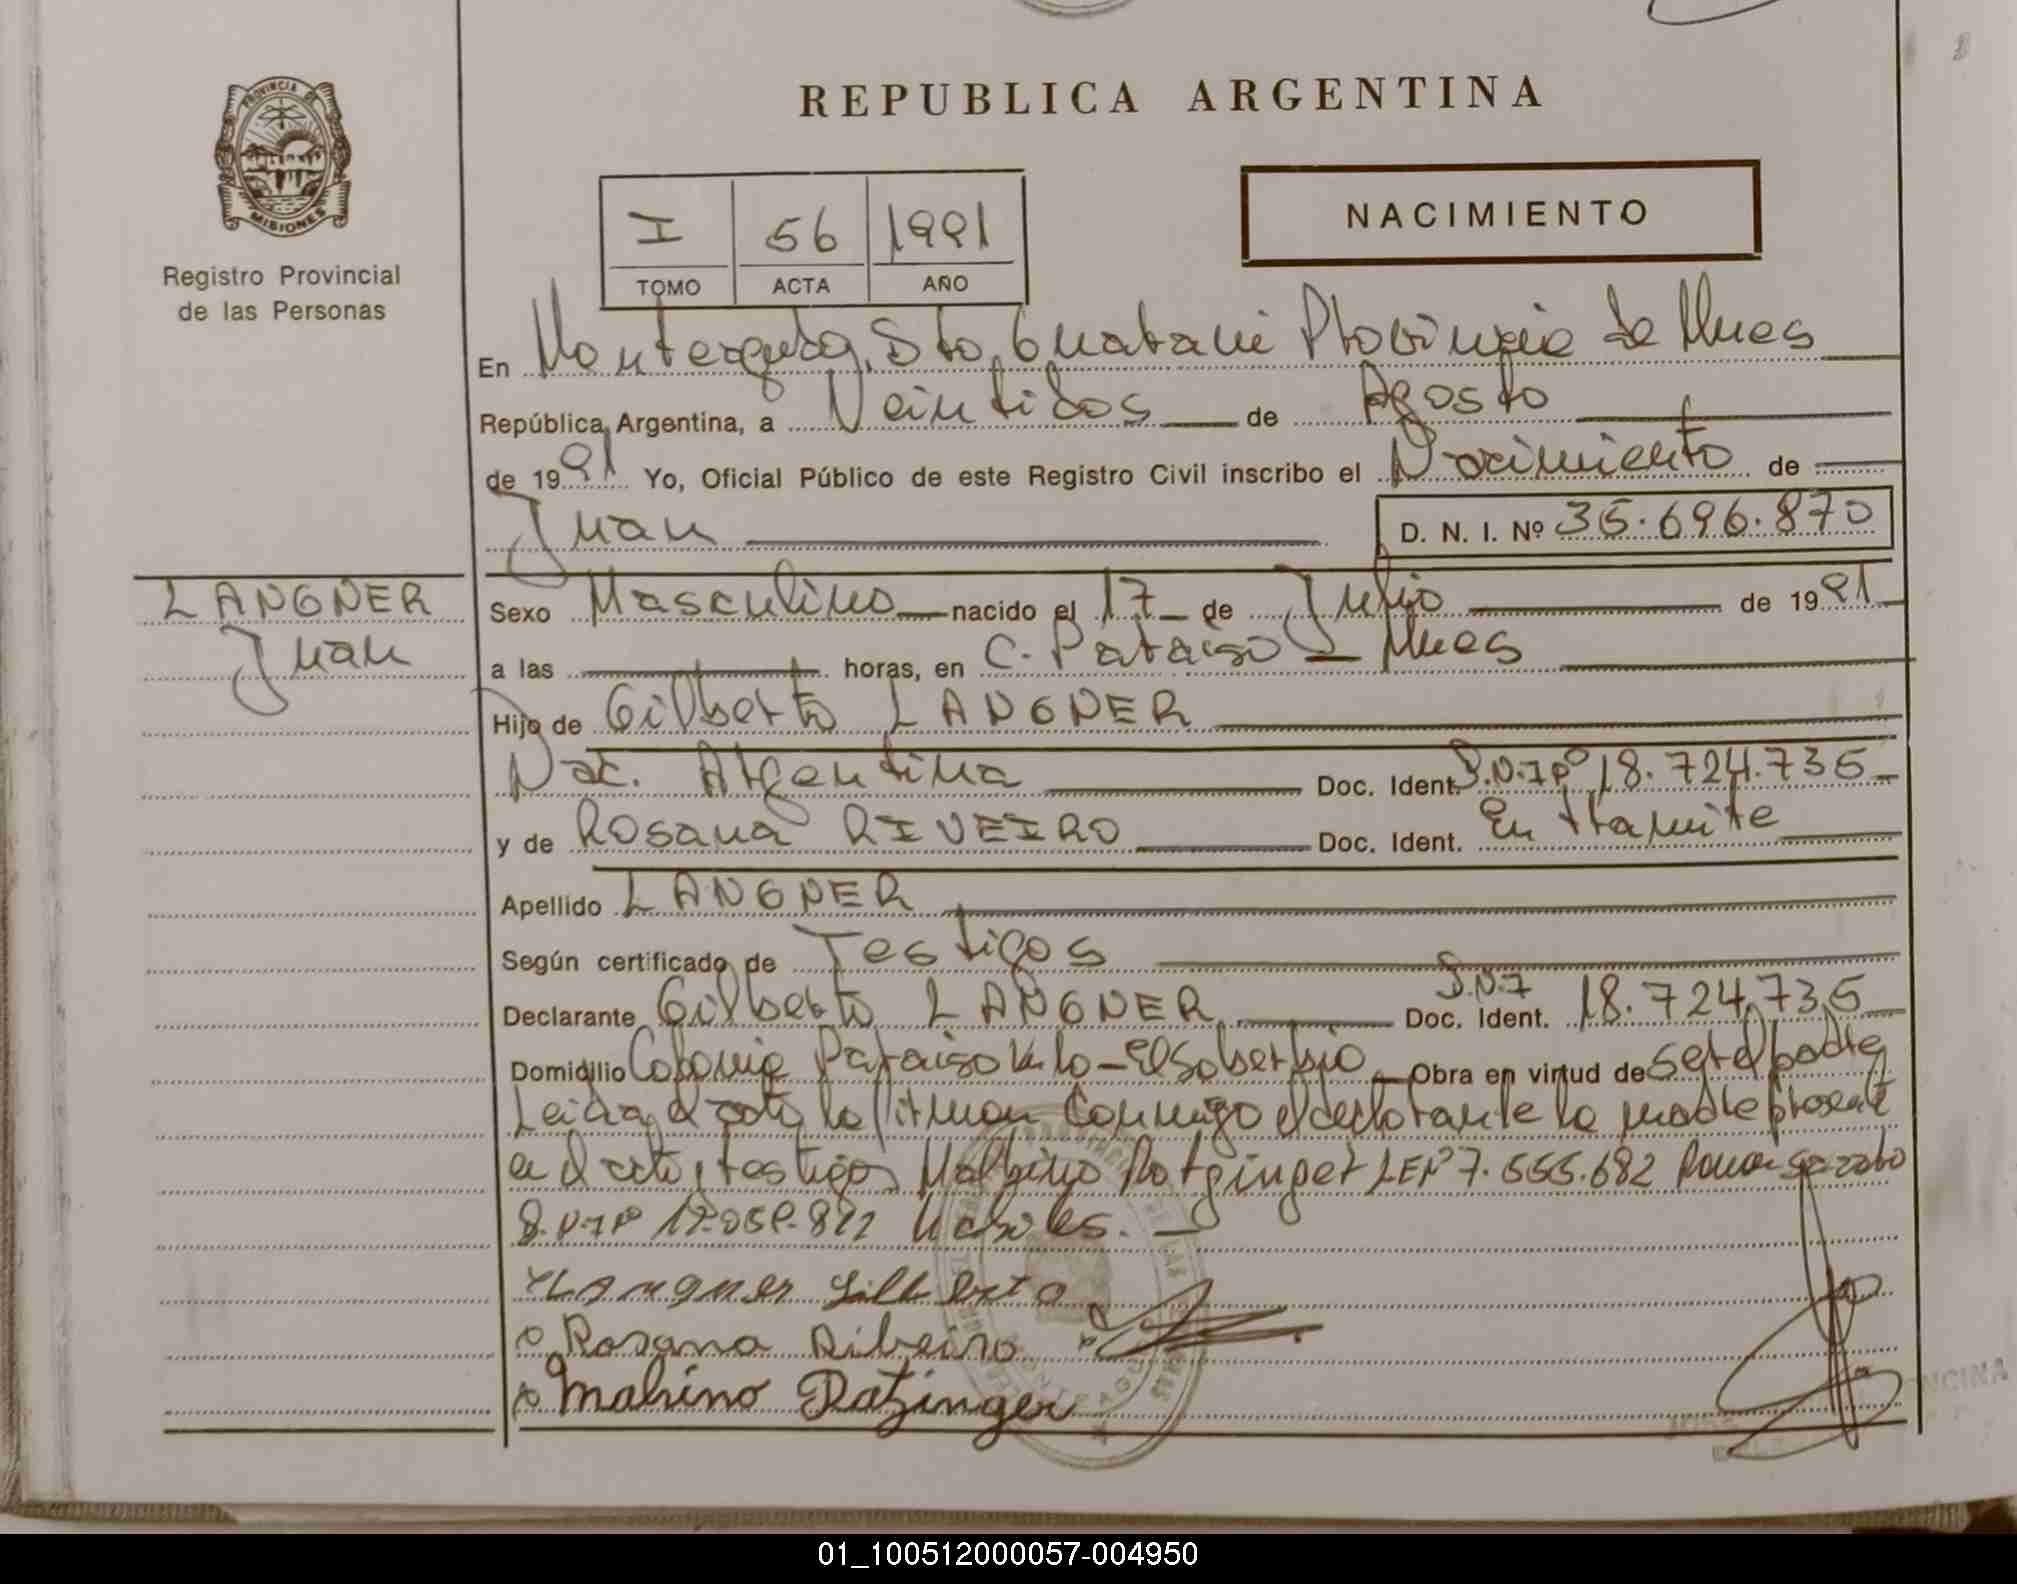 PROVINCIA DE
MISIONES
Registro Provincial
de las Personas
REPUBLICA ARGENTINA
I 56 1991
TOMO ACTA AÑO
NACIMIENTO
En Monteagudo, Dto. Guarani Provincia de Mnes
República Argentina, a Veintidos de Agosto
de 1991 Yo, Oficial Público de este Registro Civil inscribo el Nacimiento de
Juan D. N. I. Nº 35.696.870
LANGNER
Juan
Sexo Masculino nacido el 17 de Julio de 1991
a las horas, en C. Paraiso - Mnes
Hijo de Gilberto LANGNER
Nac. Argentina Doc. Ident. D.N.I Nº 18.724.735
y de Rosana RIVEIRO Doc. Ident. En tramite
Apellido LANGNER
Según certificado de Testigos
Declarante Gilberto LANGNER Doc. Ident. D.N.I 18.724.735
Domicilio Colonia Paraiso - El Soberbio Obra en virtud de ser el padre
Leida el acta la firman conmigo el declarante la madre presente
en el acto, testigos Ratzinger LE Nº 7.555.682
D.N.I Nº
Langner Gilberto
Rosana Ribeiro
Malrino Ratzinger
01_100512000057-004950